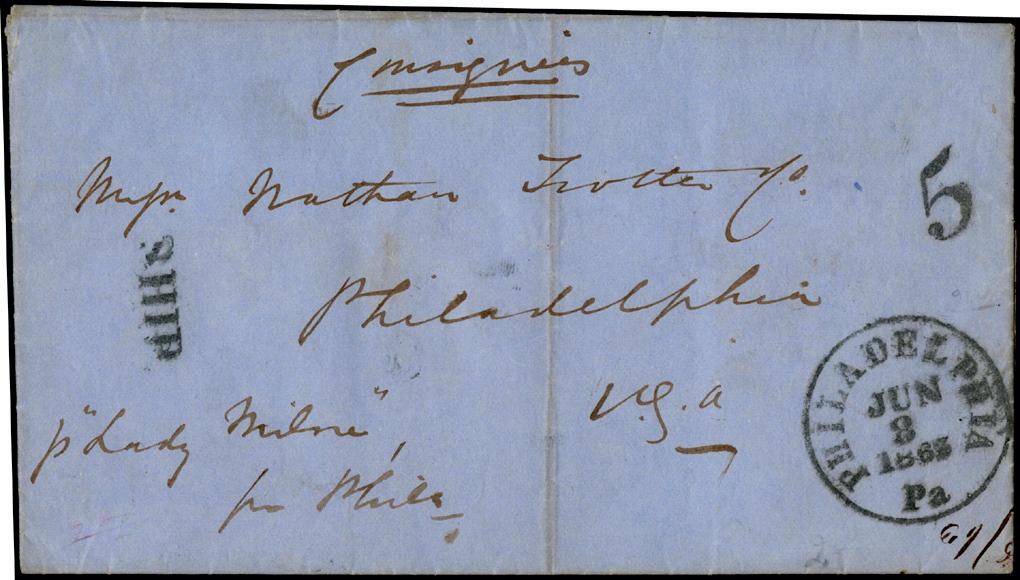 Consignees
Messrs. Nathan Trotter & Co.
5
SHIP
Philadelphia
U.S.A
PHILADELPHIA
JUN
8
1863
Pa
p "Lady Milne",
for Phila